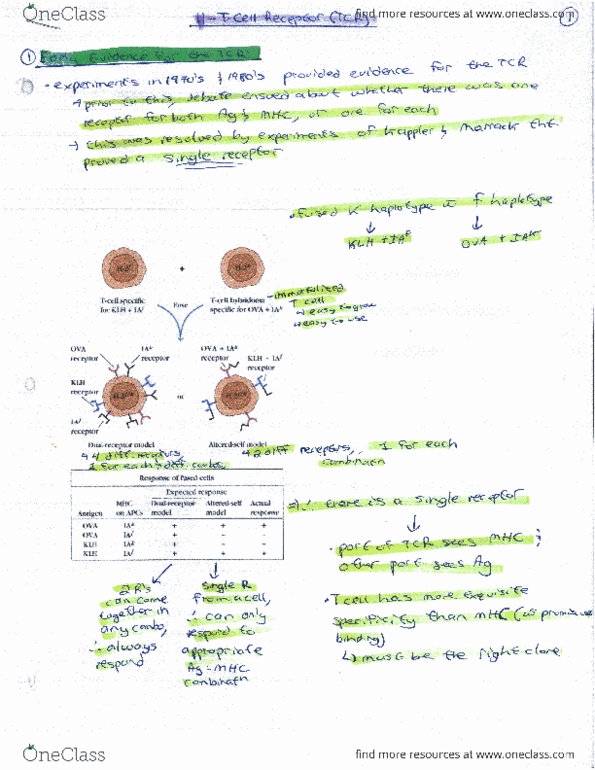 OneClass
find more resources at www.oneclass.com
11 - T-Cell Receptor (TCR)
① Early Evidence for the TCR
• experiments in 1970's & 1980's provided evidence for the TCR
→ prior to this, debate ensued about whether there was one
receptor for both Ag & MHC, or one for each
→ this was resolved by experiments of Kappler & Marrack tht
proved a single receptor
• fused K haplotype f haplotype
KLH + IAf OVA + IAk
+
T-cell specific
for KLH + IAf
Fuse
T-cell hybridoma
specific for OVA + IAk
- immortalized
T cell
→ easy to grow
→ easy to use
OVA
receptor
IAk
receptor
OVA + IAk
receptor
KLH + IAf
receptor
KLH
receptor
or
IAf
receptor
Dual-receptor model
Altered-self model
4 diff receptors
1 for each diff combo
2 diff receptors, 1 for each
combinatn
Response of fused cells
Expected response
Antigen
MHC
on APCs
Dual-receptor
model
Altered-self
model
Actual
response
OVA IAk + + +
OVA IAf + - -
KLH IAk + - -
KLH IAf + + +
⇒ ∴ there is a single receptor
• part of TCR sees MHC &
other part sees Ag
2 R's
can come
together in
any combo,
∴ always
respond
Single R
from a cell,
∴ can only
respond to
appropriate
Ag-MHC
combinatn
• T cell has more exquisite
specificity than MHC
binding)
↳ must be the right clone
OneClass
find more resources at www.oneclass.com